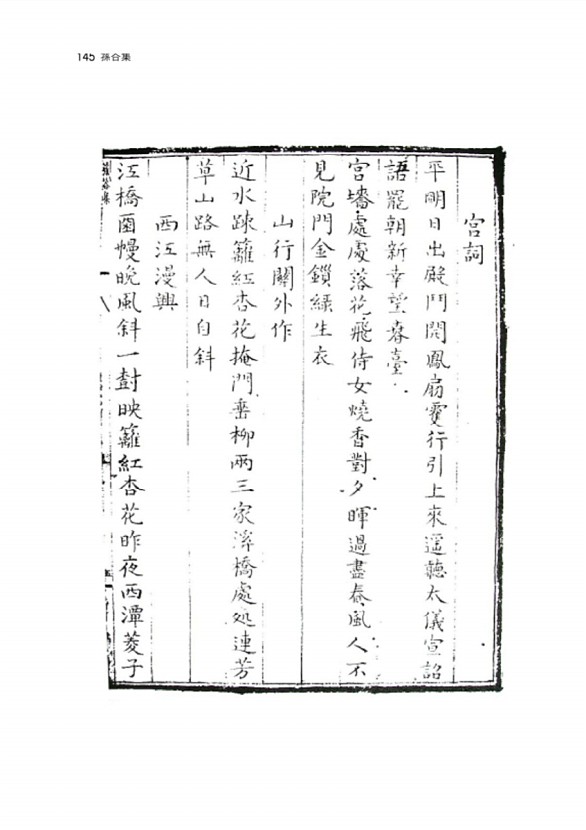 145 孫合集
宮詞
平明日出殿門開鳳扇雙行引上來遥聽太儀宣詔
語罷朝新幸望春臺
宮墻處處落花飛侍女燒香對夕暉過盡春風人不
見院門金鎖綠生衣
山行關外作
近水踈籬紅杏花掩門垂柳兩三家溪橋處処連芳
草山路無人日自斜
西江漫興
江橋酉幔晚風斜一對映籬紅杏花昨夜西潭菱子